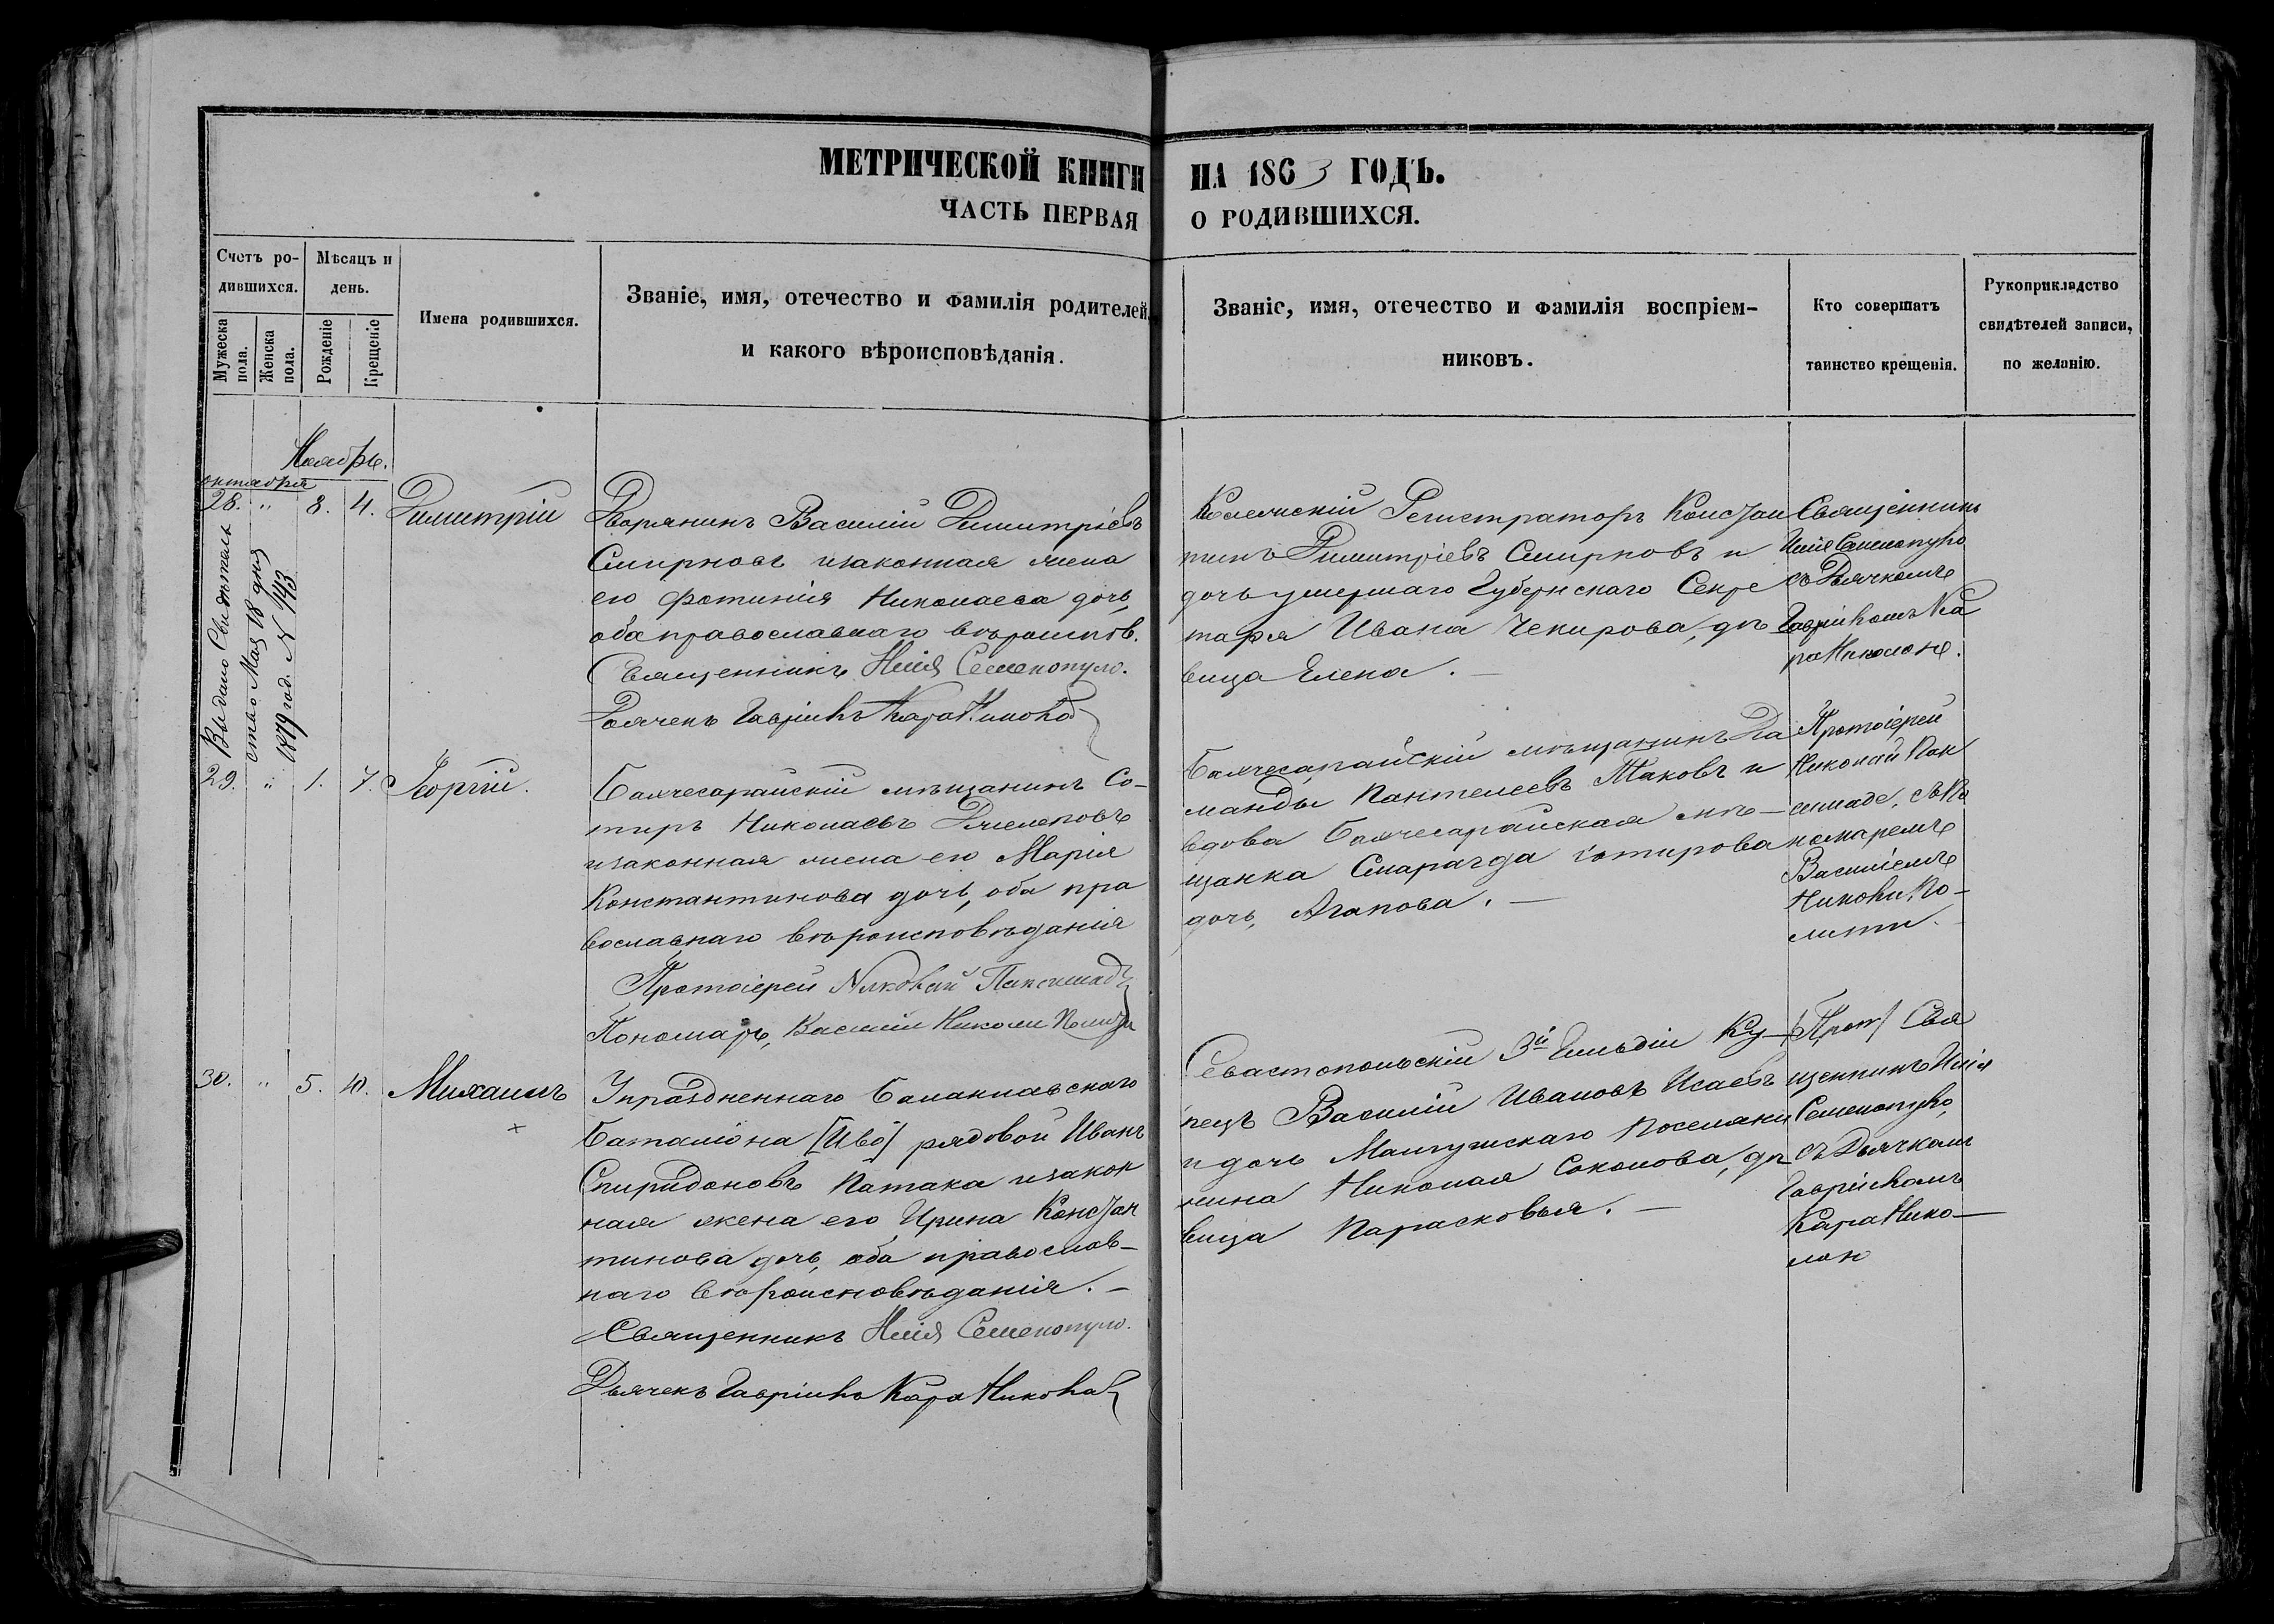 МЕТРИЧЕСКОЙ КНИГИ НА 1863 ГОДЪ.
ЧАСТЬ ПЕРВАЯ О РОДИВШИХСЯ.
Счетъ ро-
дившихся.
Мужеска
пола.
Женска
пола.
Мѣсяцъ и
день.
Рожденіе
Крещеніе
Имена родившихся.
Званіе, имя, отечество и фамилія родителей,
и какого вѣроисповѣданія.
Званіе, имя, отечество и фамилія воспріем-
никовъ.
Кто совершатъ
таинство крещенія.
Рукоприкладство
свидѣтелей записи,
по желанію.
Ноябрь.
октября
28. " 8. 4. Димитрій
Выдано Свидѣтель
ство Мая 18 дня
1879 год. N 143
Дворянинъ Василій Димитріевъ
Смирновъ изаконная жена
его Фотинія Николаева дочь,
оба православнаго вѣроиспов.
Священникъ Илія Семенопуло.
Дьячекъ Гавріилъ Кара Никола
Колежскій Регистраторъ Констан
тинъ Димитріевъ Смирновъ и
дочь умершаго Губернскаго Секре
таря Ивана Чекирова, дѣ
вица Елена.
Священникъ
Илія Семенопуло
съ Дьячкомъ
Гавріиломъ Ка
ра Николою.
29. " 1. 7. Георгій.
Бахчесарайскій мѣщанинъ Со-
тиръ Николаевъ
изаконная жена его Марія
Константинова дочь, оба пра
вославнаго вѣроисповѣданія
Протоіерей Николай
Пономарь, Василій Николи
Бахчесарайскій мѣщанинъ Діа
манды Пантелеевъ и
вдова Бахчесарайская мѣ-
щанка Смарагда Сотирова
дочь, Агапова.
Протоіерей
Николай
съ По
номаремъ
Василіемъ
30. " 5. 10. Михаилъ
Упраздненнаго Балаклавскаго
баталіона рядовой Иванъ
Спиридоновъ Патака изакон
ная жена его Ирина Констан
тинова дочь, оба православ-
наго вѣроисповѣданія.
Священникъ Илія Семенопуло.
Дьячекъ Гавріилъ Кара Никола
Севастопольскій 3й Гильдіи Ку-
пецъ Василій Ивановъ Исаевъ
и дочь Мангушскаго Поселяни
нина Николая Соколова, дѣ
вица Парасковья.
Свя
щенникъ Илія
Семенопуло,
съ Дьячкомъ
Гавріиломъ
Кара Нико-
лою